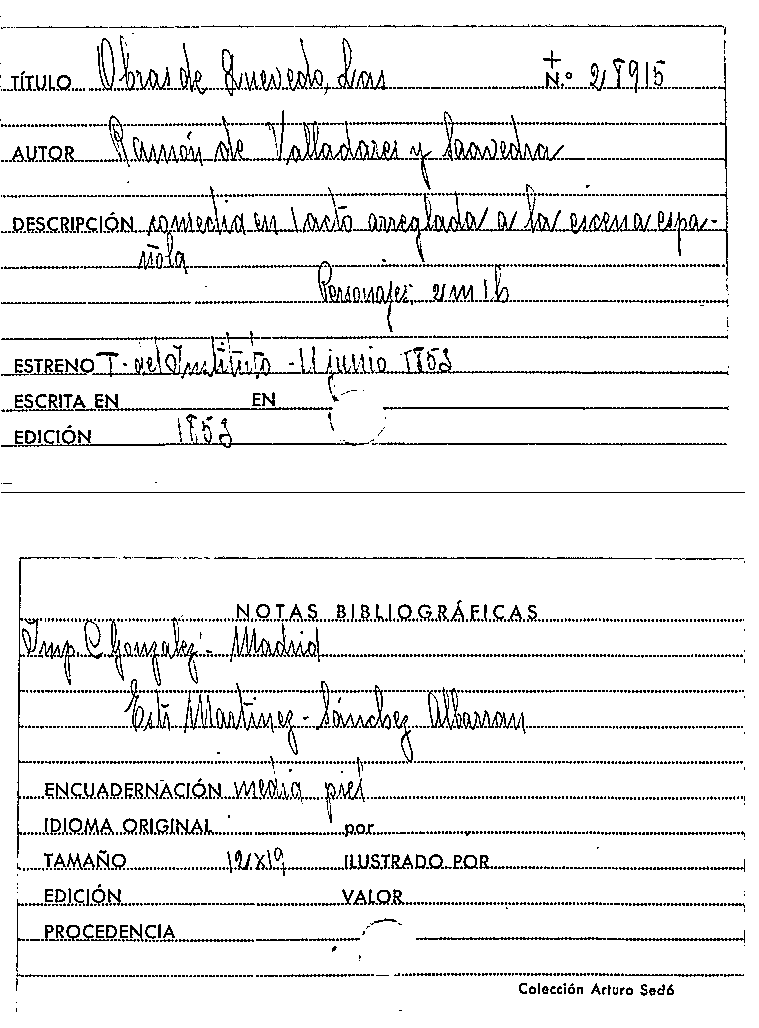 TÍTULO Obras de Quevedo, Las + N.º 28915
AUTOR Ramón de Valladares y Saavedra
DESCRIPCIÓN comedia en 1 acto arreglada a la escena espa-
ñola
Personajes: 2 m 1 h
ESTRENO T. del Instituto - 11 junio 1853
ESCRITA EN EN
EDICIÓN 1853
NOTAS BIBLIOGRÁFICAS
Imp. C. Gonzalez - Madrid
Estr Martinez - Sánchez Albarran
ENCUADERNACIÓN media piel
IDIOMA ORIGINAL por
TAMAÑO 12x19 ILUSTRADO POR
EDICIÓN VALOR
PROCEDENCIA
Colección Arturo Sedó